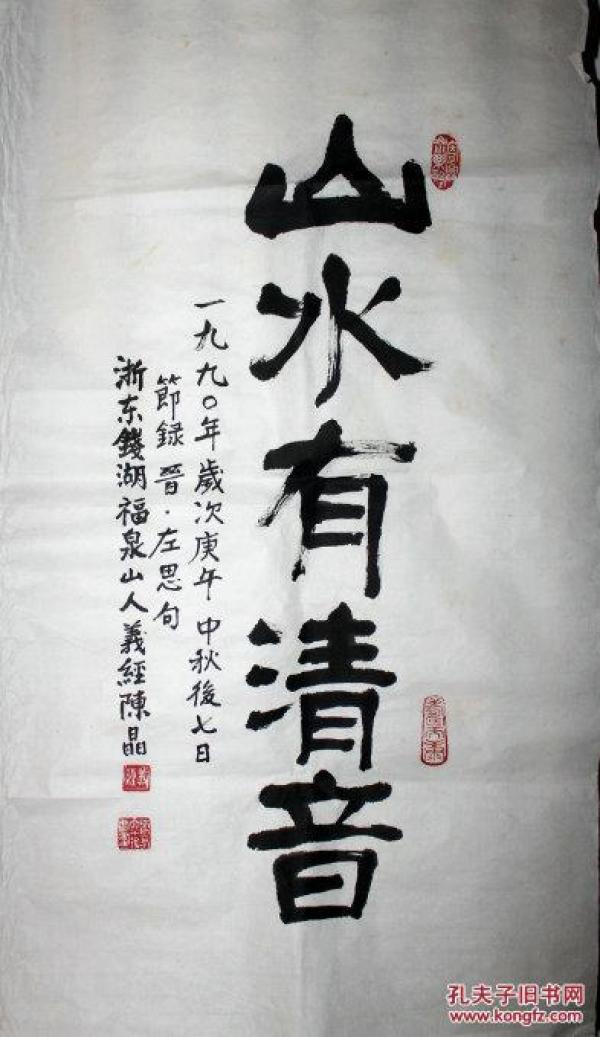 山水有清音
一九九〇年歲次庚午中秋後七日
節録晉·左思句
浙东錢湖福泉山人義經陳晶
孔夫子旧书网
www.kongfz.com